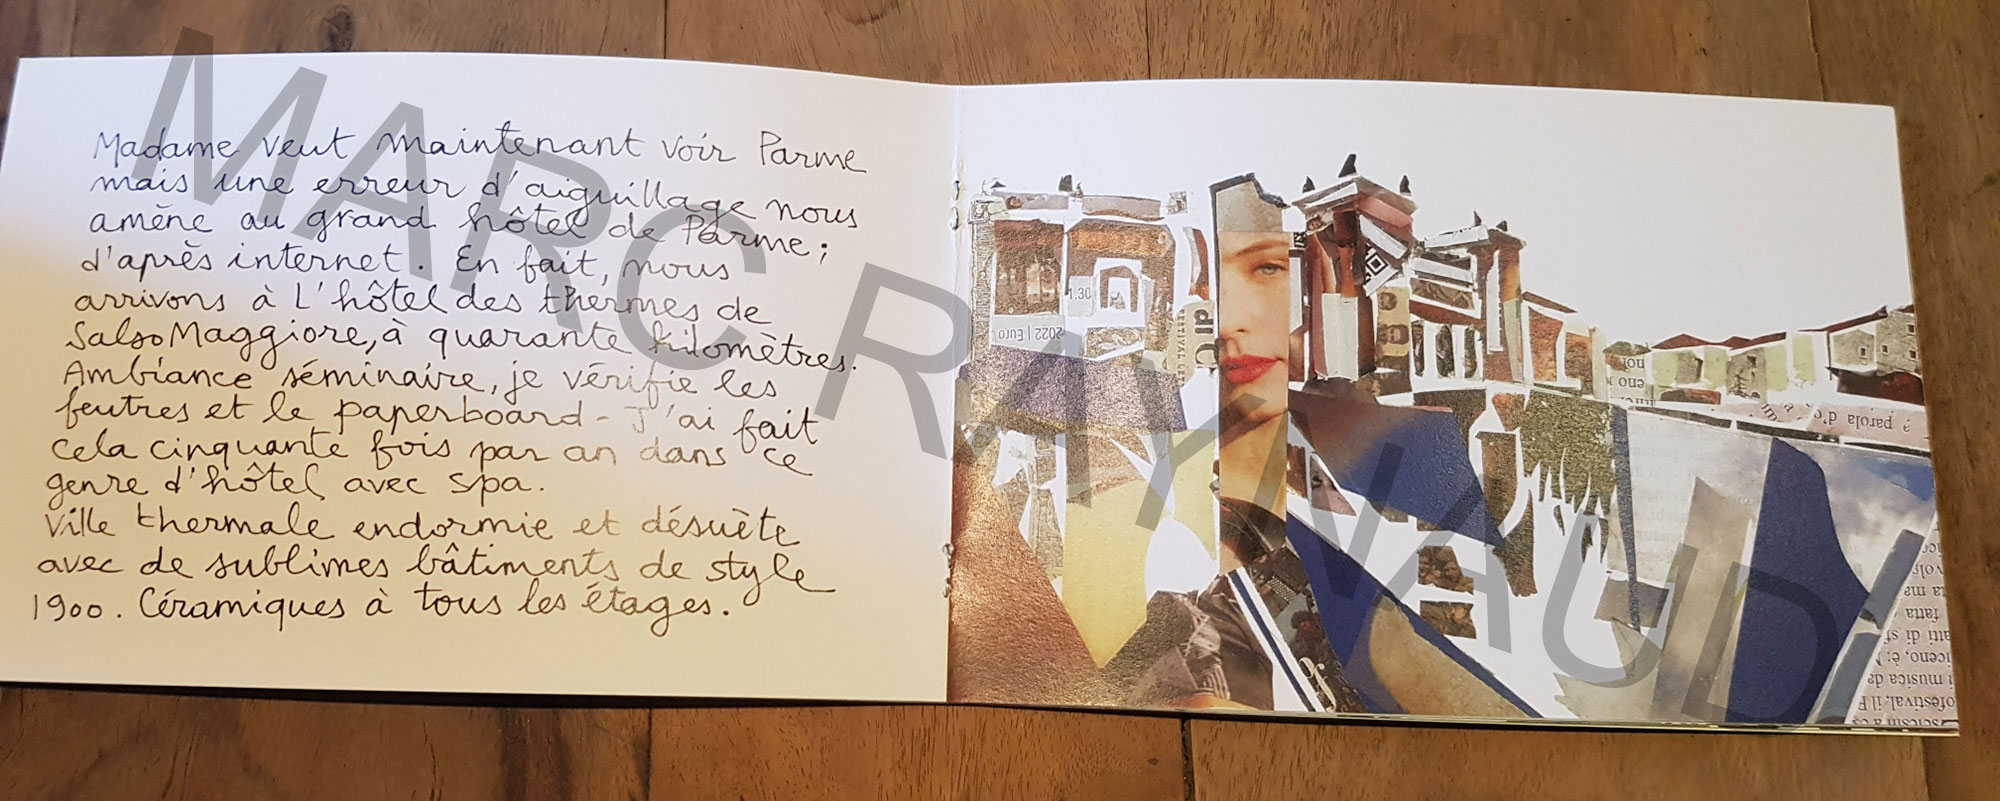 Madame veut maintenant voir Parme
mais une erreur d'aiguillage nous
amène au grand hôtel de Parme ;
d'après internet. En fait, nous
arrivons à L'hôtel des thermes de
SalsoMaggiore, à quarante kilomètres.
Ambiance séminaire, je vérifie les
feutres et le paperboard - J'ai fait
cela cinquante fois par an dans ce
genre d'hôtel avec spa.
Ville thermale endormie et désuète
avec de sublimes bâtiments de style
1900. Céramiques à tous les étages.
MARC RAYNAUD
1.30
2022 | Euro
di
eno
? parola d'o
fatta
atti di
niceno, è:
i musica da
ofestival, il